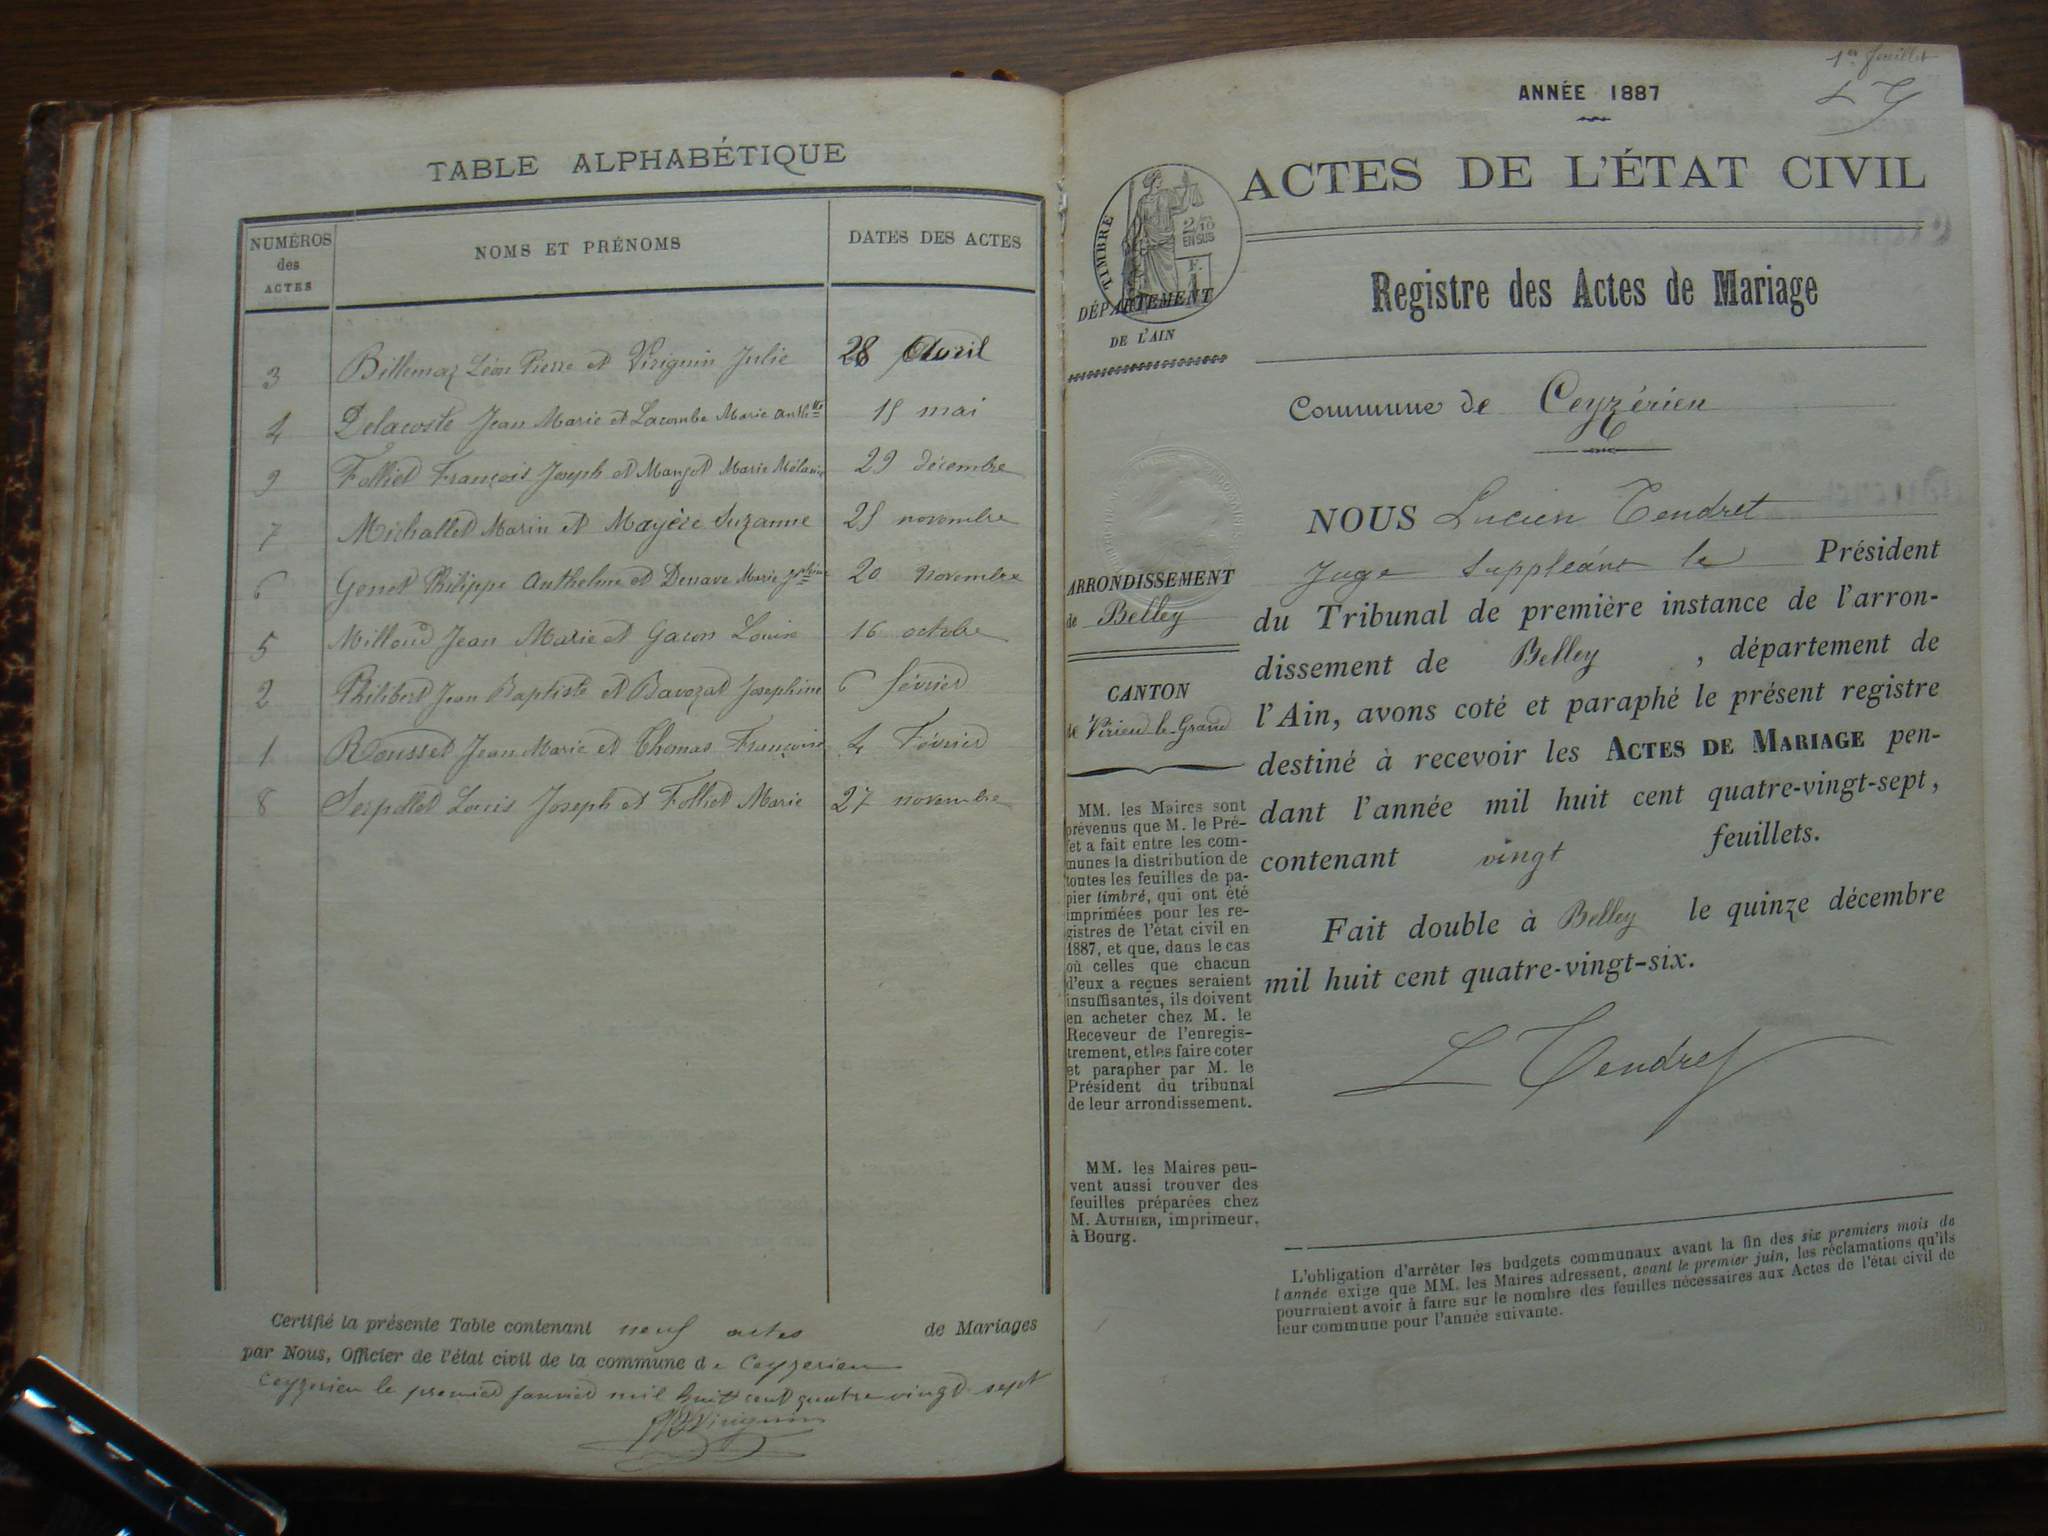 TABLE ALPHABÉTIQUE
NUMÉROS des ACTES
NOMS ET PRÉNOMS
DATES DES ACTES
3 Billemaz Léon Pierre et Viriguin Julie 28 Avril
4 Delacoste Jean Marie et Lacombe Marie Anth.tte 15 mai
9 Folliet François Joseph et Marjot Marie Mélanie 29 décembre
7 Michallet Marin et Mayère Suzanne 25 novembre
6 Genet Philippe Anthelme et Denave Marie 20 Novembre
5 Milloud Jean Marie et Gacon Louise 16 octobre
2 Philibert Jean Baptiste et Bavozat Josephine 6 février
1 Rousset Jean Marie et Thomas Françoise 4 Février
8 Serpollet Louis Joseph et Folliet Marie 27 novembre
Certifié la présente Table contenant neuf actes de Mariages
par Nous, Officier de l'état civil de la commune de Ceyzerieu
Ceyzerieu le premier janvier mil huit cent quatre vingt sept
Viriguin
1er feuillet
L T
ANNÉE 1887
ACTES DE L'ÉTAT CIVIL
TIMBRE
2/10
EN SUS
F.
1
DÉPARTEMENT
DE L'AIN
Registre des Actes de Mariage
Commune de Ceyzérieu
ARRONDISSEMENT
de Belley
CANTON
de Virieu-le-Grand
MM. les Maires sont
prévenus que M. le Pré-
fet a fait entre les com-
munes la distribution de
toutes les feuilles de pa-
pier timbré, qui ont été
imprimées pour les re-
gistres de l'état civil en
1887, et que, dans le cas
où celles que chacun
d'eux a reçues seraient
insuffisantes, ils doivent
en acheter chez M. le
Receveur de l'enregis-
trement, et les faire coter
et parapher par M. le
Président du tribunal
de leur arrondissement.
MM. les Maires peu-
vent aussi trouver des
feuilles préparées chez
M. AUTHIER, imprimeur,
à Bourg.
NOUS Lucien Tendret
Juge Suppléant le Président
du Tribunal de première instance de l'arron-
dissement de Belley, département de
l'Ain, avons coté et paraphé le présent registre
destiné à recevoir les ACTES DE MARIAGE pen-
dant l'année mil huit cent quatre-vingt-sept,
contenant vingt feuillets.
Fait double à Belley le quinze décembre
mil huit cent quatre-vingt-six.
L Tendret
L'obligation d'arrêter les budgets communaux avant la fin des six premiers mois de
l'année exige que MM. les Maires adressent, avant le premier juin, les réclamations qu'ils
pourraient avoir à faire sur le nombre des feuilles nécessaires aux Actes de l'état civil de
leur commune pour l'année suivante.